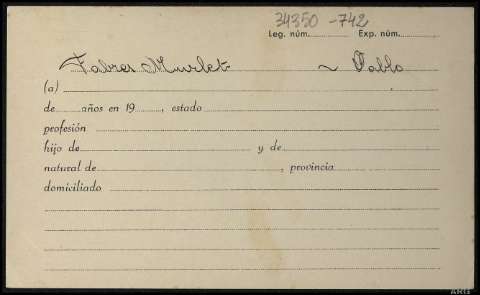 34350 -742
Leg. núm. Exp. núm.
Fabres Murlet ~ Pablo
(a)
de años en 19 , estado
profesión
hijo de y de
natural de , provincia
domiciliado